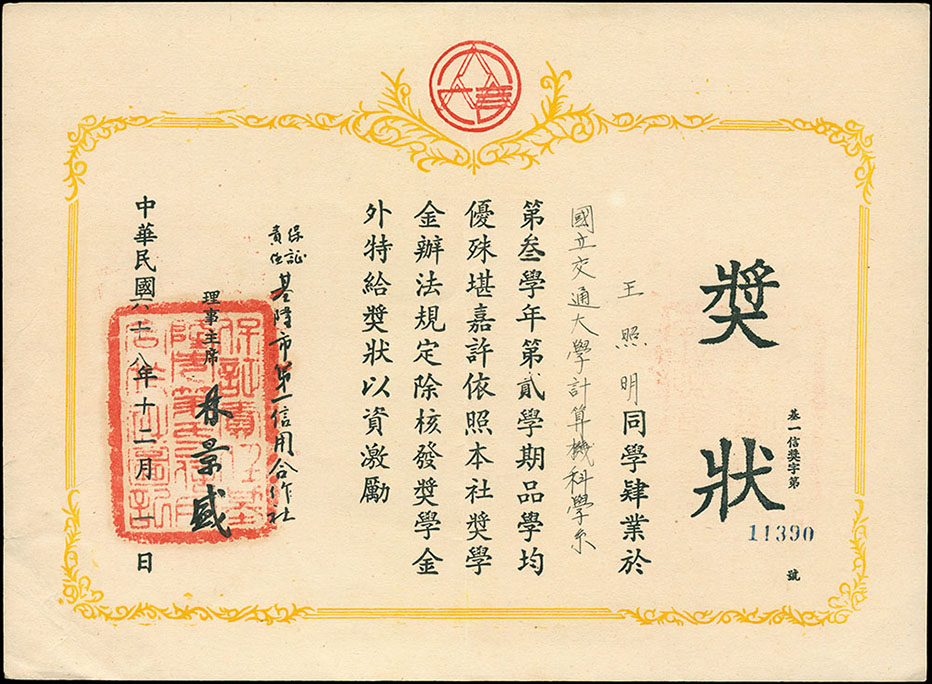 獎狀
基一信獎字第
11390
號
王照明同學肄業於
國立交通大學計算機科學系
第叁學年第貳學期品學均
優殊堪嘉許依照本社獎學
金辦法規定除核發獎學金
外特給獎狀以資激勵
保証
責任
基隆市第一信用合作社
理事主席
林景盛
中華民國六十八年十二月一日